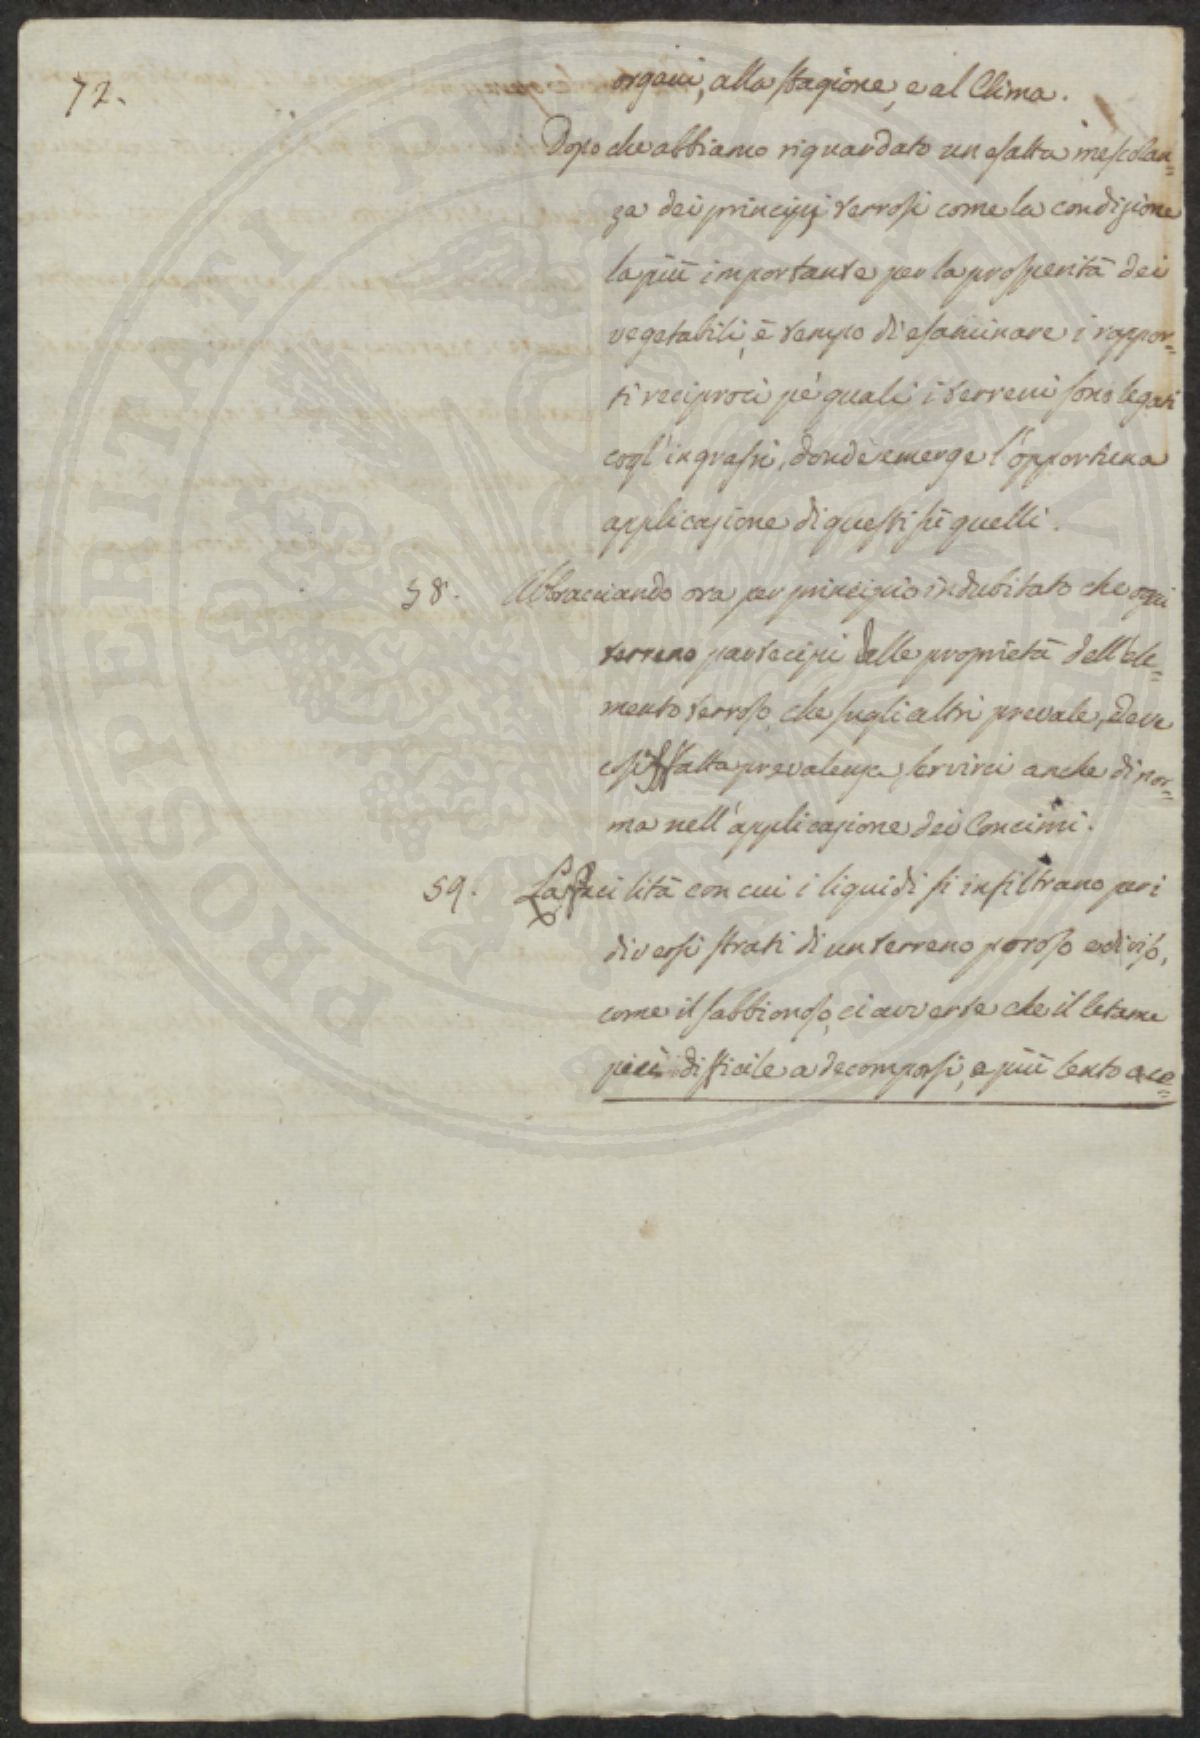 72.
organi, alla stagione, e al Clima.
Dopo che abbiamo riguardato un esatta mescolan=
za dei principj terrosi come la condizione
la più importante per la prosperità dei
vegetabili, è tempo di esaminare i rappor=
ti reciproci pe' quali i terreni sono legati
cogl'ingrassi, donde emerge l'opportuna
applicazione di questi sù quelli.
58. Abbracciando ora per principio indubitato che ogni
terreno partecipi delle proprietà dell'ele=
mento terroso, che sugli altri prevale, deve
così fatta prevalenza servirci anche di nor=
ma nell'applicazione dei Concimi.
59. La facilità con cui i liquidi si infiltrano pei
diversi strati di un terreno poroso e diviso,
come il sabbionoso, ci avverte che il letame
più difficile a decomporsi, e più lento a ce=
PROSPERITATI PUBLICAE